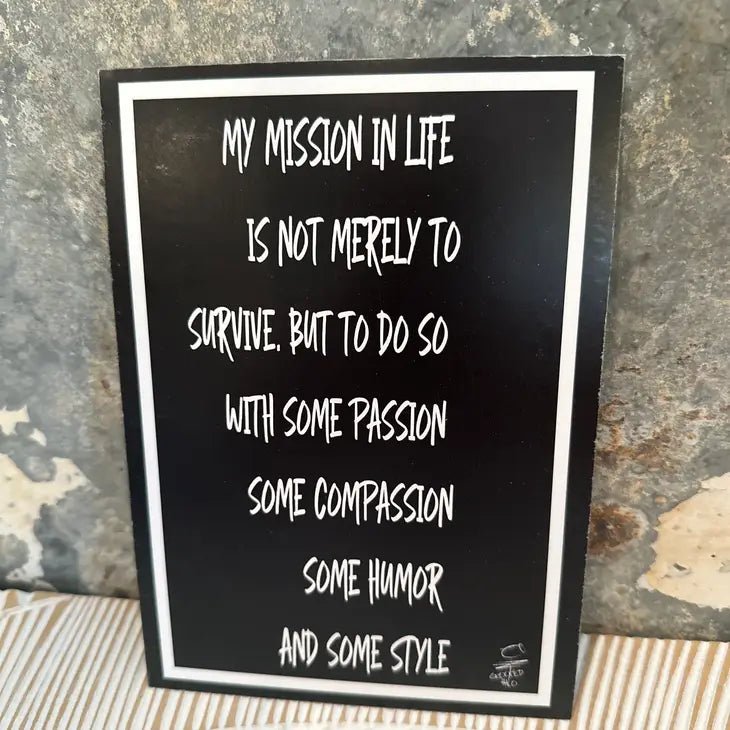 MY MISSION IN LIFE
IS NOT MERELY TO
SURVIVE. BUT TO DO SO
WITH SOME PASSION
SOME COMPASSION
SOME HUMOR
AND SOME STYLE